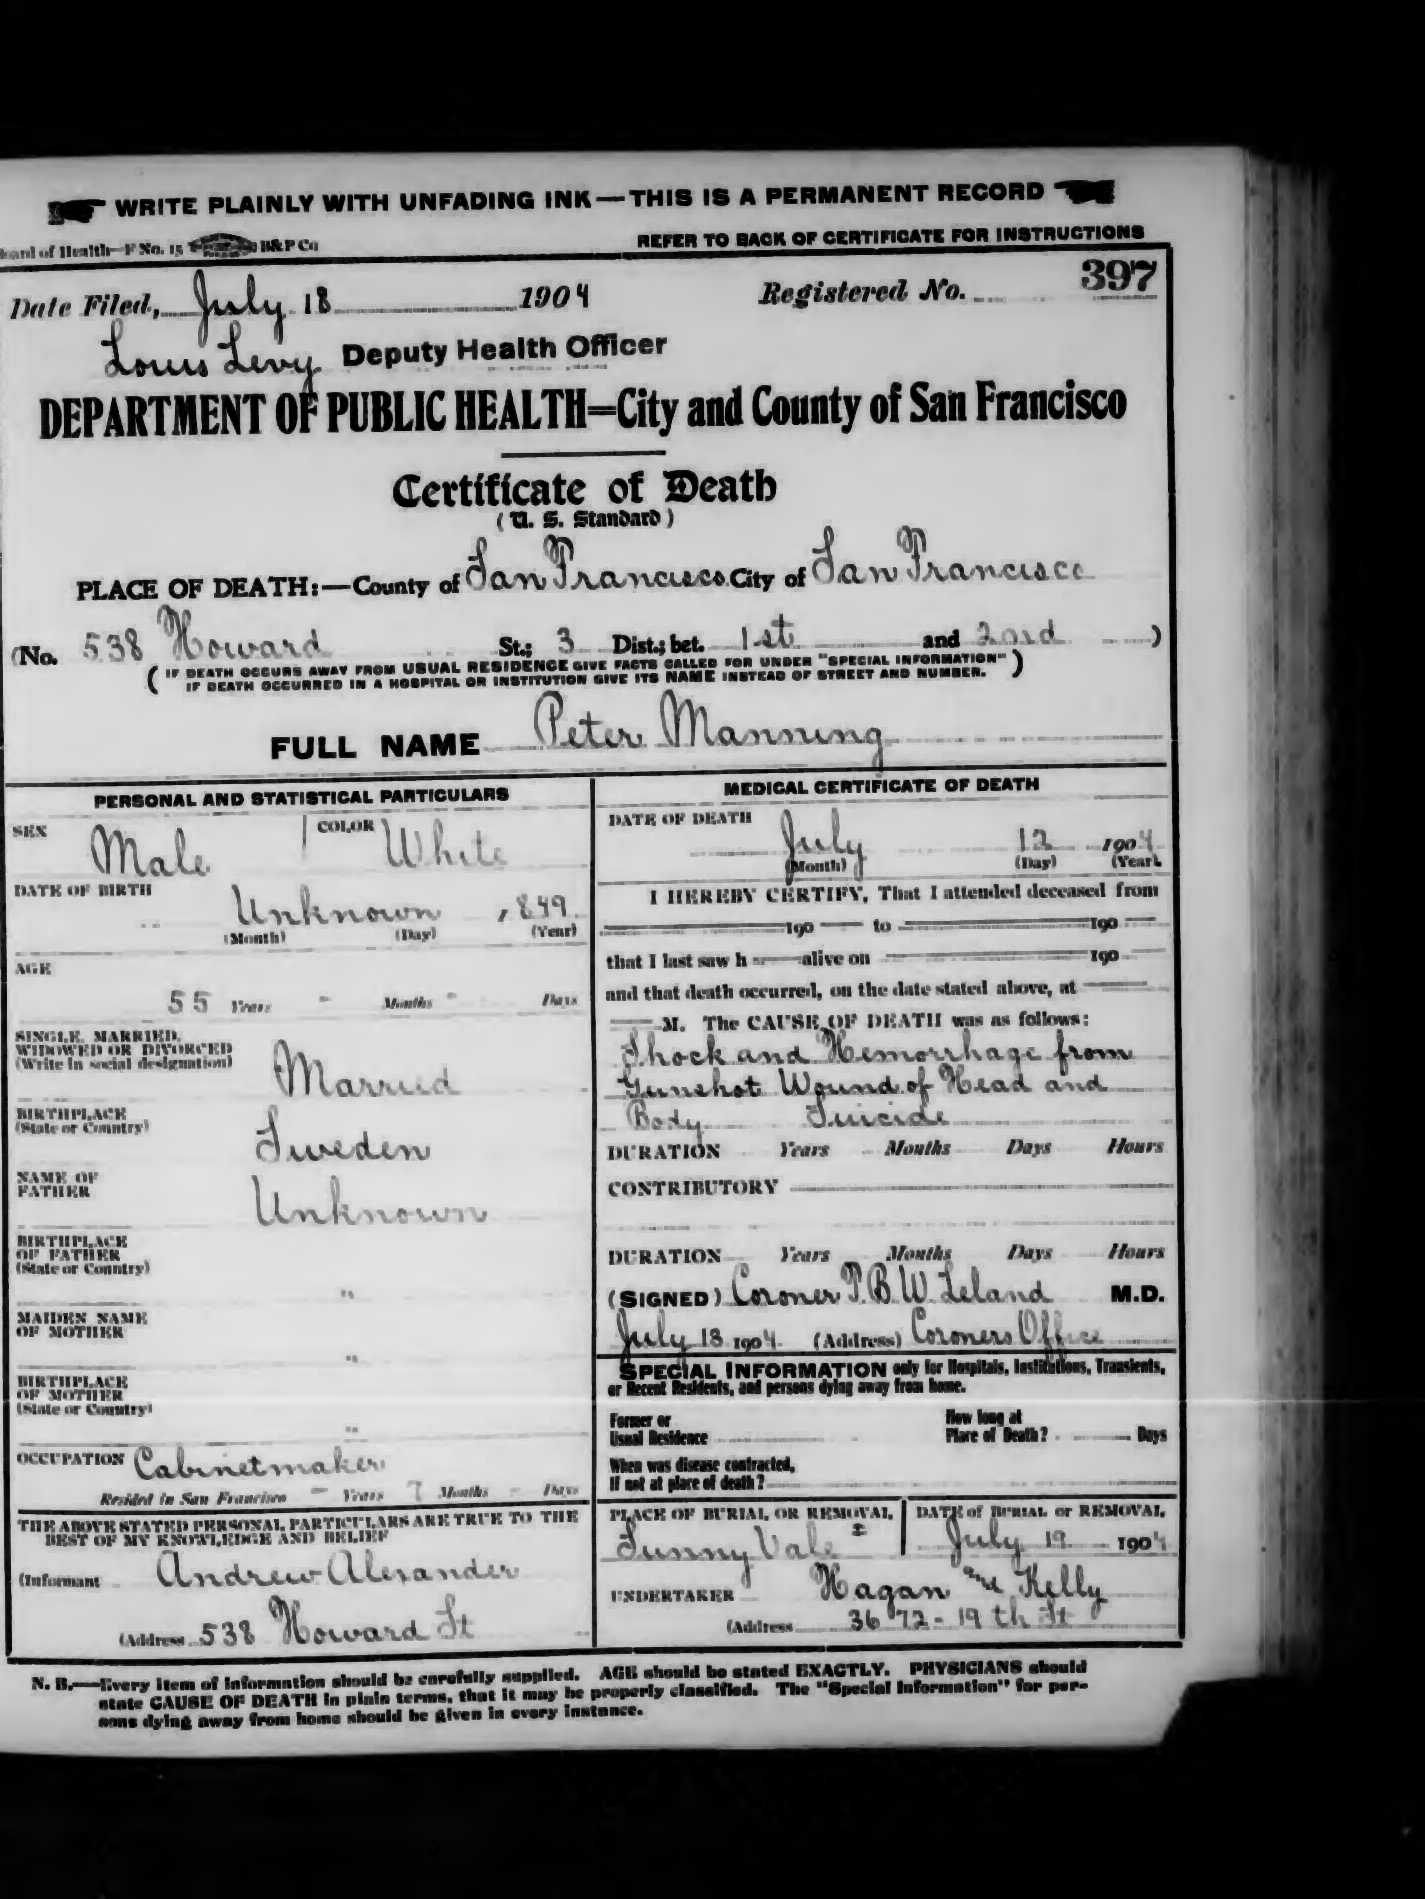 WRITE PLAINLY WITH UNFADING INK—THIS IS A PERMANENT RECORD
Board of Health—F No. 15 B&P Co
REFER TO BACK OF CERTIFICATE FOR INSTRUCTIONS
Date Filed, July 18 1904 Registered No. 397
Louis Levy Deputy Health Officer
DEPARTMENT OF PUBLIC HEALTH=City and County of San Francisco
Certificate of Death
(U. S. Standard)
PLACE OF DEATH:—County of San Francisco City of San Francisco
(No. 538 Howard St.; 3 Dist.; bet. 1st and 2nd )
( IF DEATH OCCURS AWAY FROM USUAL RESIDENCE GIVE FACTS CALLED FOR UNDER "SPECIAL INFORMATION" )
IF DEATH OCCURRED IN A HOSPITAL OR INSTITUTION GIVE ITS NAME INSTEAD OF STREET AND NUMBER.
FULL NAME Peter Manning
PERSONAL AND STATISTICAL PARTICULARS
SEX Male COLOR White
DATE OF BIRTH
Unknown , 849
(Month) (Day) (Year)
AGE
55 Years - Months - Days
SINGLE, MARRIED,
WIDOWED OR DIVORCED
(Write in social designation)
Married
BIRTHPLACE
(State or Country)
Sweden
NAME OF
FATHER
Unknown
BIRTHPLACE
OF FATHER
(State or Country)
"
MAIDEN NAME
OF MOTHER
"
BIRTHPLACE
OF MOTHER
(State or Country)
"
OCCUPATION Cabinetmaker
Resided in San Francisco - Years 7 Months - Days
THE ABOVE STATED PERSONAL PARTICULARS ARE TRUE TO THE
BEST OF MY KNOWLEDGE AND BELIEF
(Informant Andrew Alexander
(Address 538 Howard St
MEDICAL CERTIFICATE OF DEATH
DATE OF DEATH
July 12 1904
(Month) (Day) (Year)
I HEREBY CERTIFY, That I attended deceased from
190 to 190
that I last saw h alive on 190
and that death occurred, on the date stated above, at
M. The CAUSE OF DEATH was as follows:
Shock and Hemorrhage from
Gunshot Wound of Head and
Body Suicide
DURATION Years Months Days Hours
CONTRIBUTORY
DURATION Years Months Days Hours
(SIGNED) Coroner T. B. W. Leland M.D.
July 13 1904 (Address) Coroners Office
SPECIAL INFORMATION only for Hospitals, Institutions, Transients,
or Recent Residents, and persons dying away from home.
Former or
Usual Residence
How long at
Place of Death? Days
When was disease contracted,
If not at place of death?
PLACE OF BURIAL OR REMOVAL
Sunny Vale
DATE of BURIAL or REMOVAL
July 19 1904
UNDERTAKER Hagan and Kelly
(Address 3672-19th St
N. B.—Every item of information should be carefully supplied. AGE should be stated EXACTLY. PHYSICIANS should
state CAUSE OF DEATH in plain terms, that it may be properly classified. The "Special Information" for per-
sons dying away from home should be given in every instance.